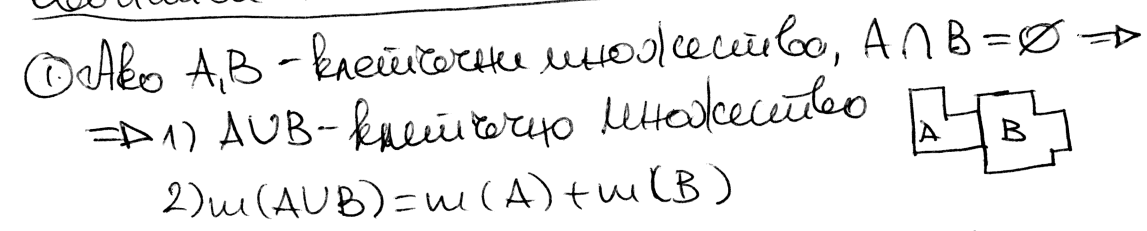 ① Ако A,B - клетъчни множество, A ∩ B = ∅ ⇒
⇒ 1) A∪B - клетъчно множество
A B
2) m(A∪B) = m(A) + m(B)